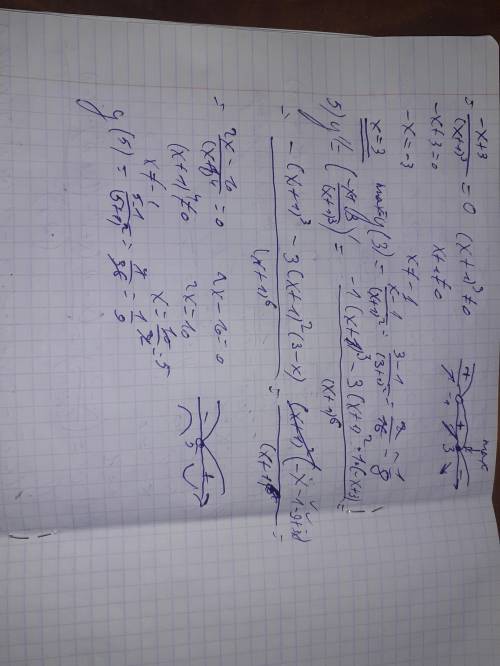 = (-x+3)/(x+1)³ = 0   (x+1)³ ≠ 0
-x+3=0   x+1≠0
-x=-3   x≠-1
x=3   max y(3) = (x-1)/(x+1)² = (3-1)/(3+1)² = 2/16 = 1/8
max
+ 3
5) y'' = ((-x+3)/(x+1)³)' = (-1(x+1)³ - 3(x+1)²·1·(-x+3))/(x+1)⁶ =
= (-(x+1)³ - 3(x+1)²(3-x))/(x+1)⁶ = ((x+1)²(-x-1-9+3x))/(x+1)⁶ =
= (2x-10)/(x+1)⁴ = 0   2x-10=0
(x+1)⁴≠0   2x=10
x≠-1   x=10/2=5
- 5 +
y(5) = (5-1)/(5+1)² = 4/36 = 1/9